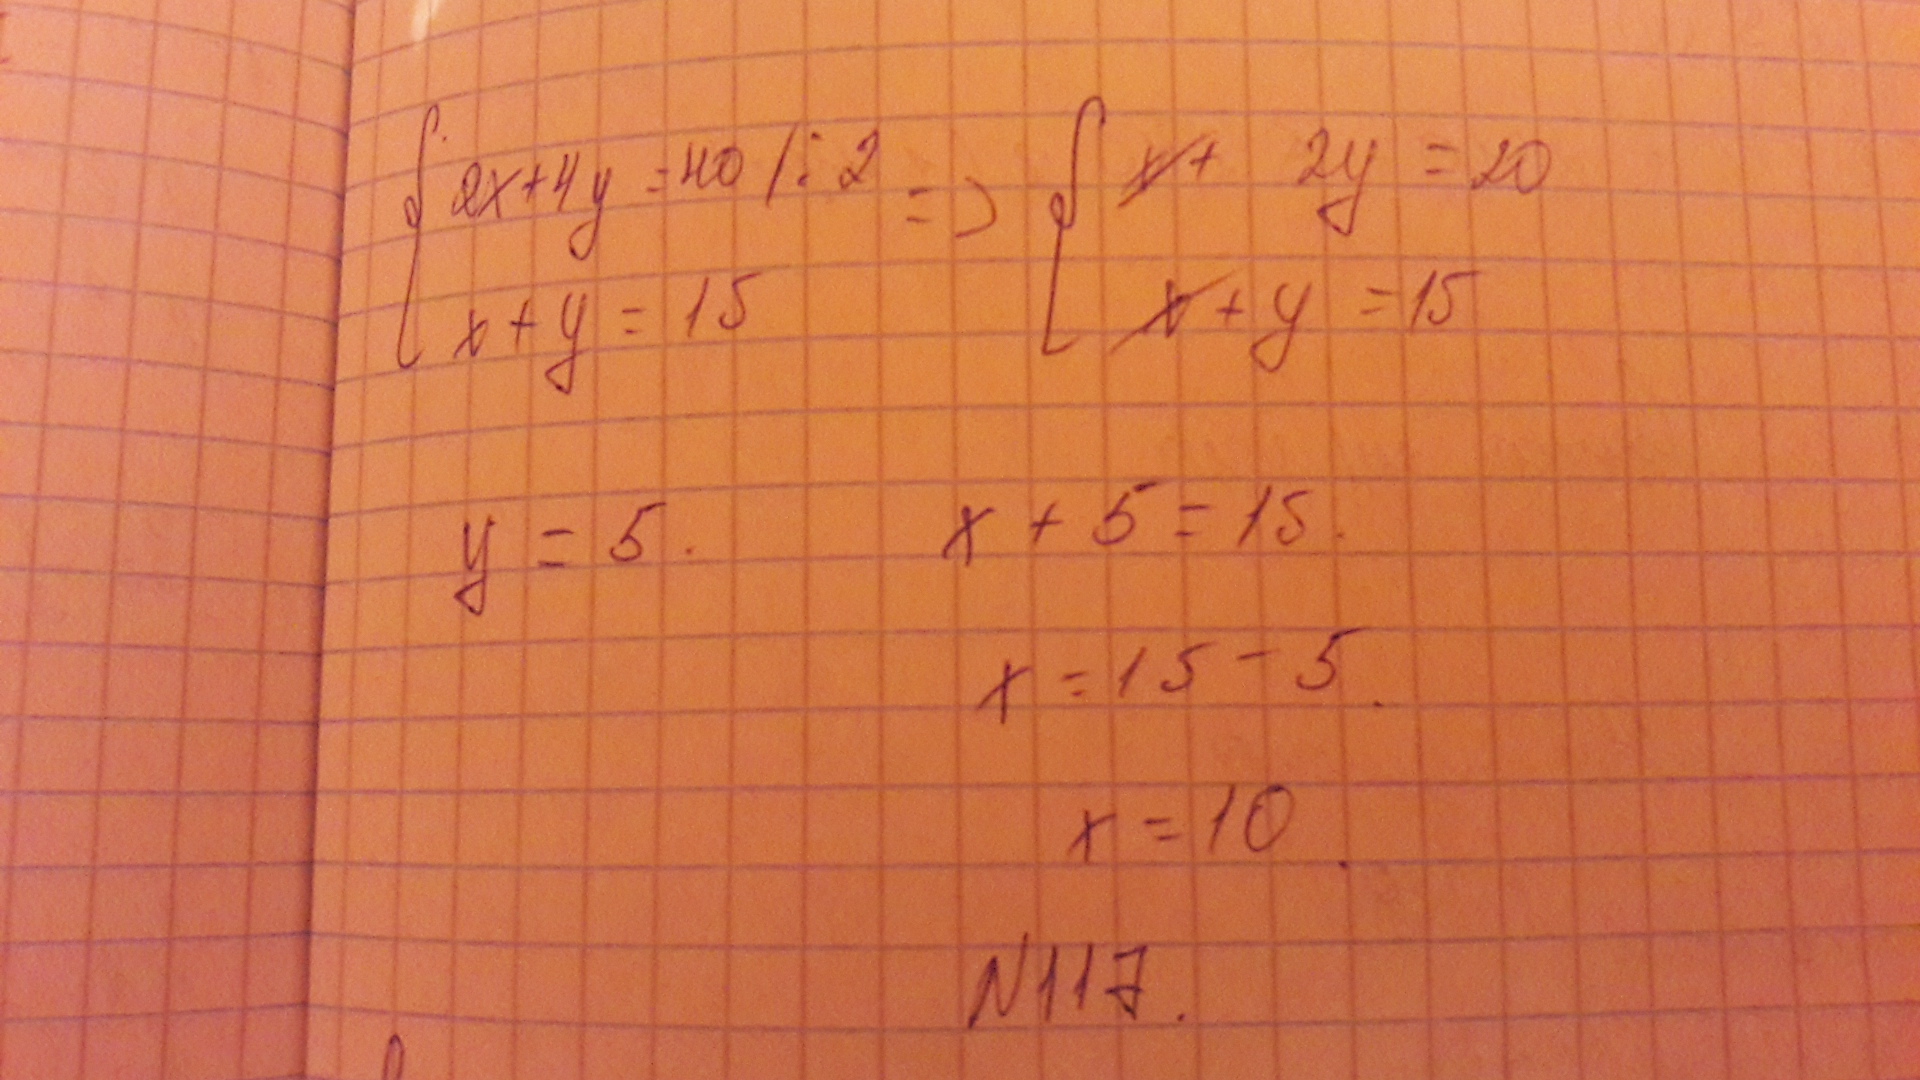 { 2x+4y=40 /:2 => { x+ 2y=20
x+y=15 x+y=15
y=5. x+5=15.
x=15-5.
x=10.
N117.